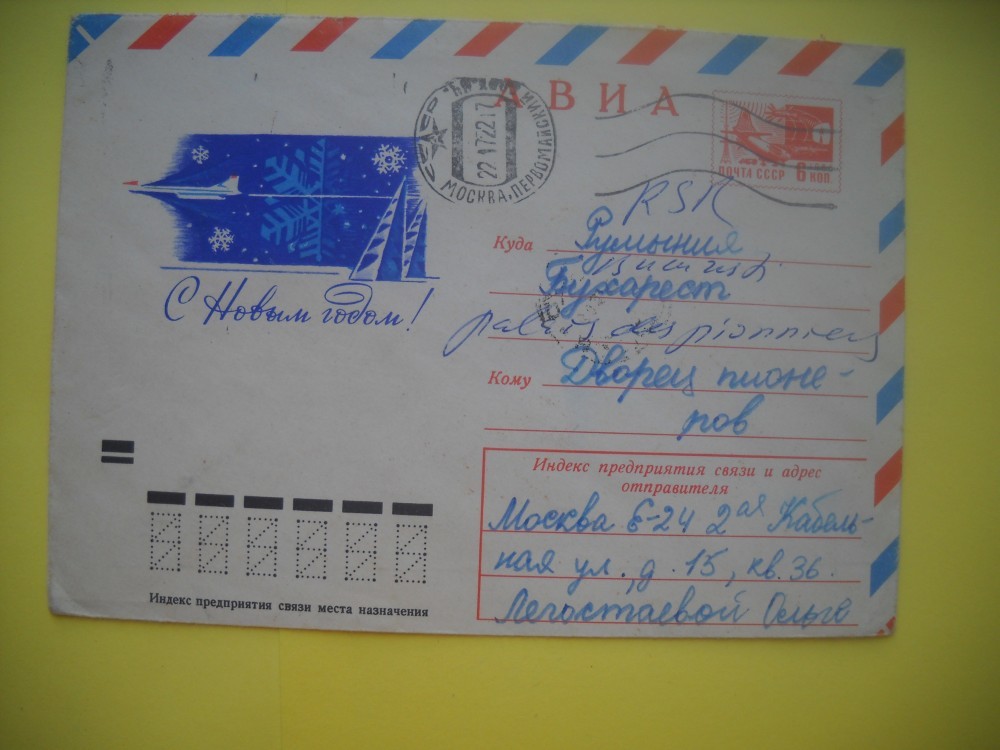 АВИА
МОСКВА, ПЕРВОМАЙСКИЙ
СССР
22 1 72 2 17
ПОЧТА СССР 6 КОП.
С Новым годом!
RSR
Куда Румыния
Бухарест
palais des pionniers
Кому Дворец пионе-
ров
Индекс предприятия связи и адрес
отправителя
Москва Е-24 2ая Кабель-
ная ул., д. 15, кв. 36.
Легостаевой Ольга
Индекс предприятия связи места назначения